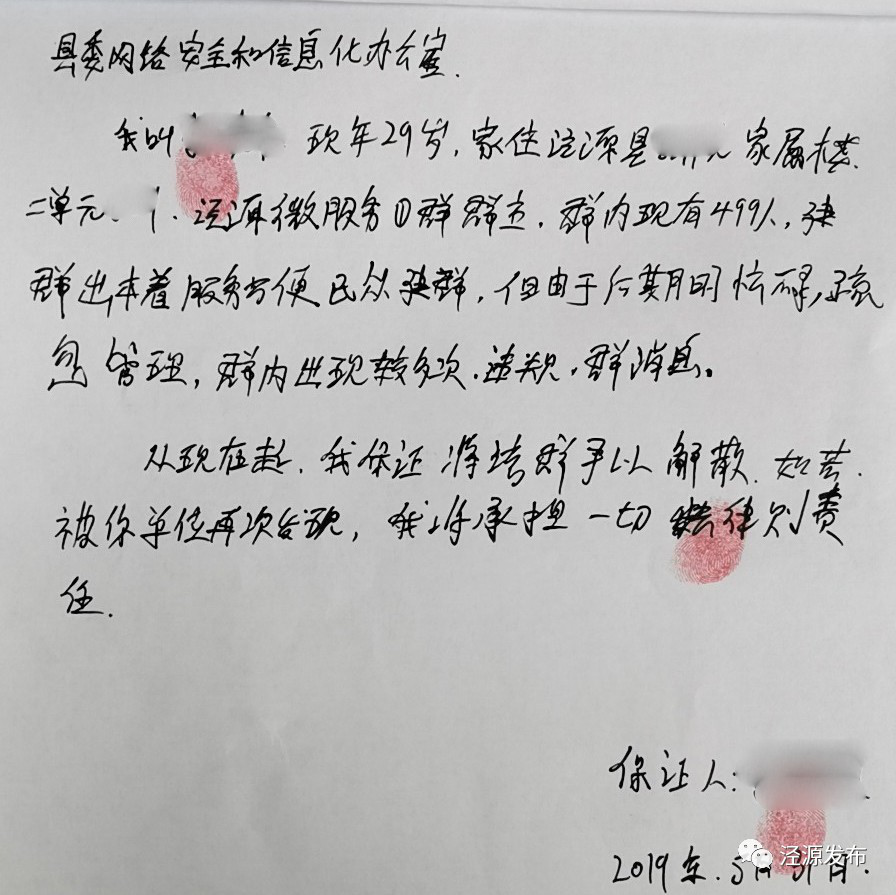 县委网络安全和信息化办公室.
我叫 现年29岁,家住泾源县 家属楼.
二单元. 泾源微服务①群群主.群内现有499人,建
群出本着服务与便民众建群,但由于后期 忙碌,疏
忽管理,群内出现较多次.违规.群消息。
从现在起.我保证将该群予以解散.如若.
被你单位再次发现,我将承担一切 法律 责
任.
保证人:
2019年.5月31日.
泾源发布